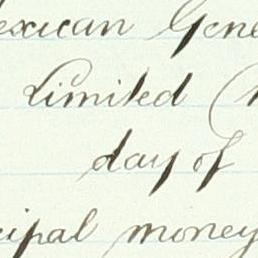 exican Gene
Limited (
day of
cipal money